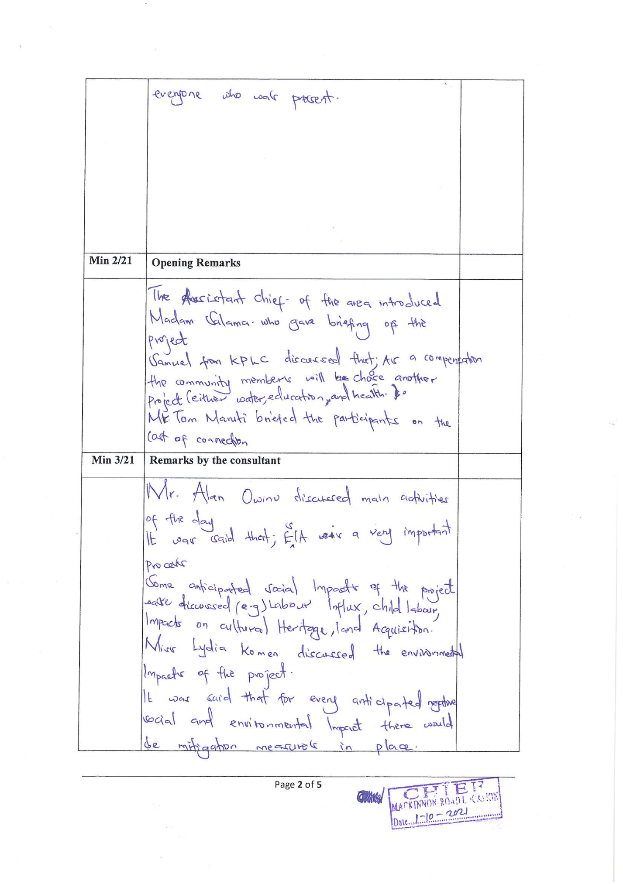 everyone who was present.
Min 2/21 Opening Remarks
The Assistant Chief of the area introduced
Madam Salama who gave briefing of the
project
Samuel from KPLC discussed that; As a compensation
the community members will chose another
project (either water, education, and health.
Mr Tom Maruti briefed the participants on the
Cost of connection
Min 3/21 Remarks by the consultant
Mr. Alan Owino discussed main activities
of the day
It was said that; ESIA was a very important
process
Some anticipated social Impacts of the project
were discussed (e.g) Labour Influx, child labour,
Impacts on cultural Heritage, land Acquisition.
Miss Lydia Komen discussed the environmental
Impacts of the project.
It was said that for every anticipated negative
social and environmental Impact there would
be mitigation measures in place.
Page 2 of 5
CHIEF
MACKINNON ROAD LOCATION
Date 1-10-2021